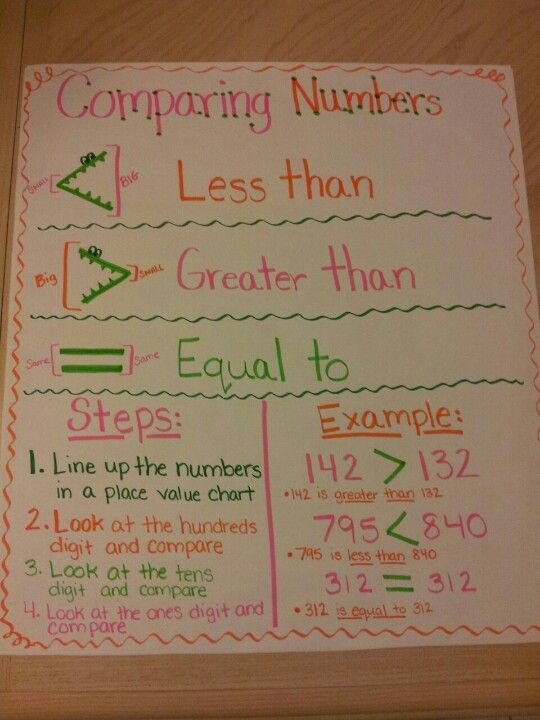 Comparing Numbers
SMALL < BIG Less than
Big > SMALL Greater than
Same = Same Equal to
Steps:
1. Line up the numbers
in a place value chart
2. Look at the hundreds
digit and compare
3. Look at the tens
digit and compare
4. Look at the ones digit and
compare
Example:
142 > 132
• 142 is greater than 132
795 < 840
• 795 is less than 840
312 = 312
• 312 is equal to 312